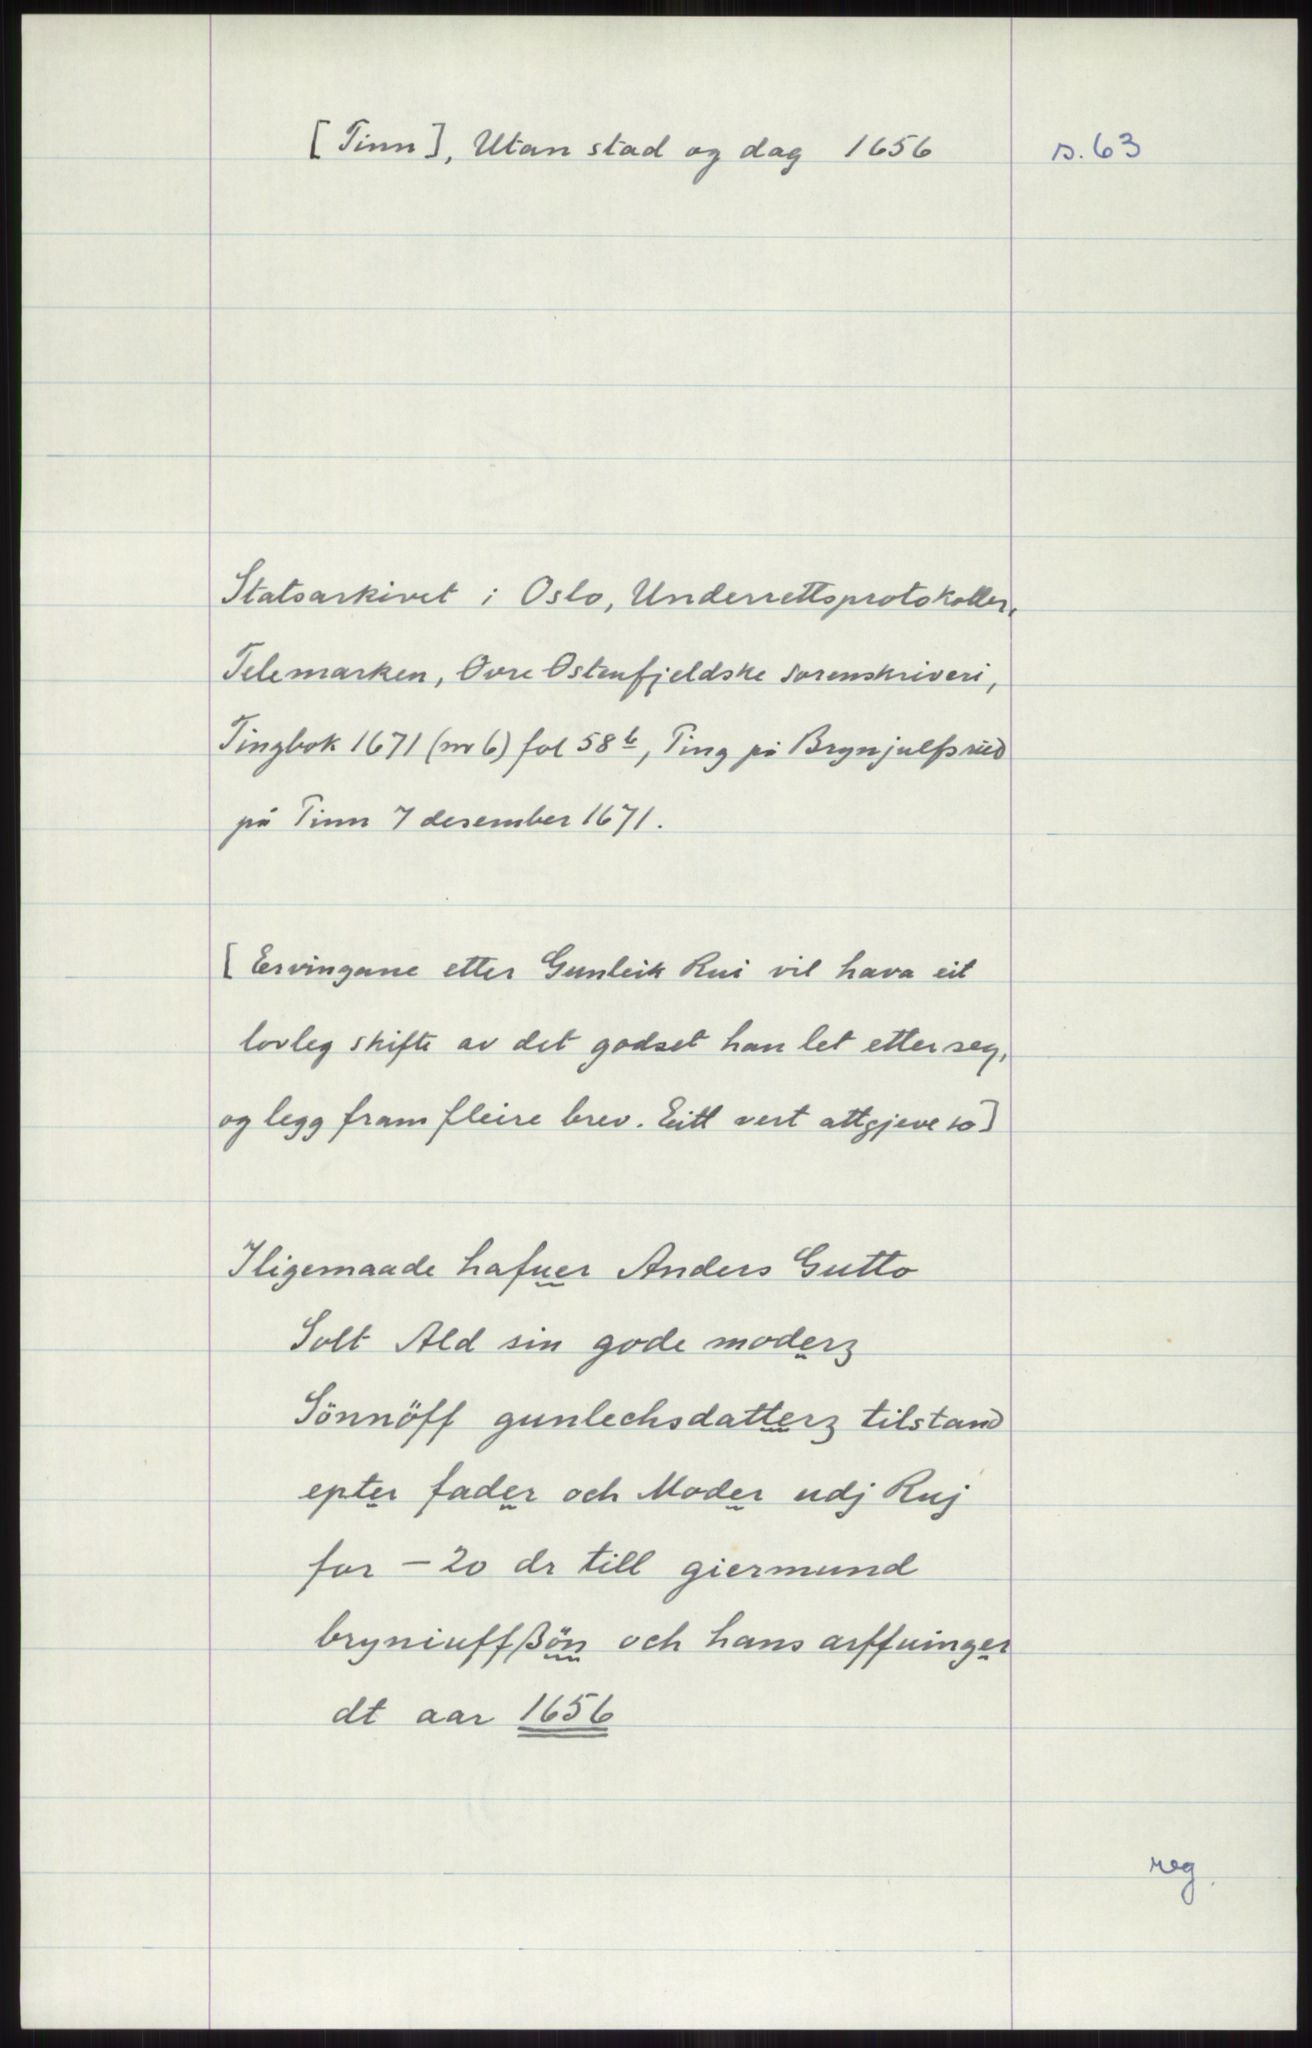 [Tinn], Utan stad og dag 1656 s. 63
Statsarkivet i Oslo, Underrettsprotokoller,
Telemarken, Øvre Østenfjeldske sorenskriveri,
Tingbok 1671 (nr 6) fol 58 b, Ting på Brynjulfsrud
på Tinn 7 desember 1671.
[Ervingane etter Gunleik Rui vil hava eit
lovleg skifte av det godset han let etter seg,
og legg fram fleire brev. Eitt vert attgjeve so]
Iligemaade hafuer Anders Gutto
Solt Ald sin gode moderz
Sönnöff gunlechsdatterz tilstand
epter fader och Moder udj Ruj
for - 20 dr till giermund
bryniuffßön och hans arffuinger
dt aar 1656
reg.